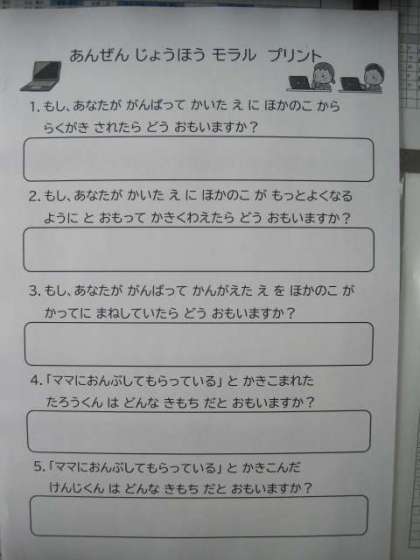 あんぜん じょうほう モラル プリント
1. もし、あなたが がんばって かいた え に ほかのこ から
らくがき されたら どう おもいますか？
2. もし、あなたが かいた え に ほかのこ が もっとよくなる
ように と おもって かきくわえたら どう おもいますか？
3. もし、あなたが がんばって かんがえた え を ほかのこ が
かってに まねしていたら どう おもいますか？
4. 「ママにおんぶしてもらっている」と かきこまれた
たろうくん は どんな きもち だと おもいますか？
5. 「ママにおんぶしてもらっている」と かきこんだ
けんじくん は どんな きもち だと おもいますか？